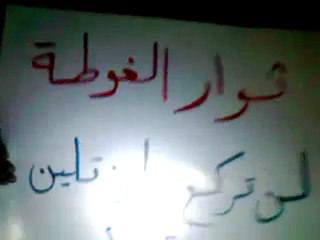 ثوار الغوطة
لن تركع لن تلين